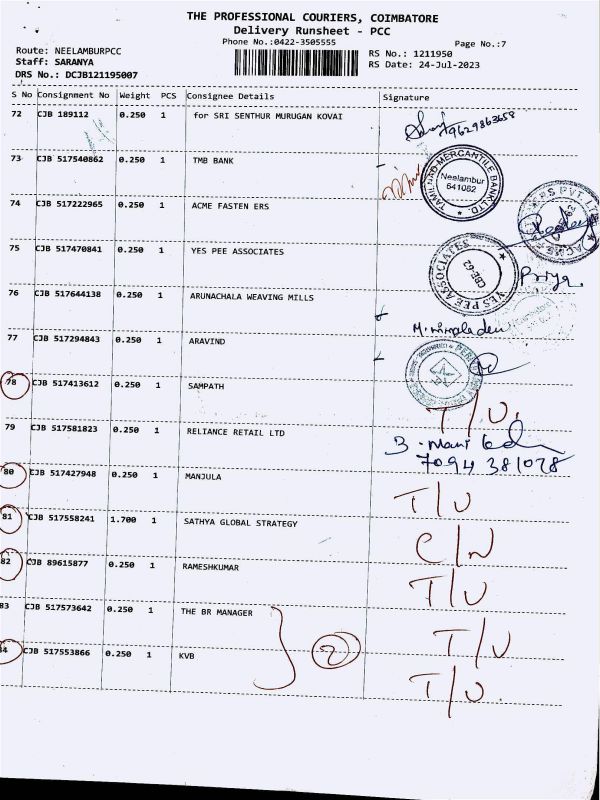 THE PROFESSIONAL COURIERS, COIMBATORE
Delivery Runsheet - PCC
Phone No.:0422-3505555
Page No.:7
Route: NEELAMBURPCC
RS No.: 1211950
Staff: SARANYA
RS Date: 24-Jul-2023
DRS No.: DCJB121195007
S No Consignment No Weight PCS Consignee Details Signature
72 CJB 189112 0.250 1 for SRI SENTHUR MURUGAN KOVAI
9629863658
73 CJB 517540862 0.250 1 TMB BANK
TAMILNAD MERCANTILE BANK LTD.
Neelambur
641062
74 CJB 517222965 0.250 1 ACME FASTEN ERS
75 CJB 517470841 0.250 1 YES PEE ASSOCIATES
YES PEE ASSOCIATES
CBE-62
Priya.
76 CJB 517644138 0.250 1 ARUNACHALA WEAVING MILLS
77 CJB 517294843 0.250 1 ARAVIND
78 CJB 517413612 0.250 1 SAMPATH T/U.
79 CJB 517581823 0.250 1 RELIANCE RETAIL LTD
7094 381078
80 CJB 517427948 0.250 1 MANJULA T/U
81 CJB 517558241 1.700 1 SATHYA GLOBAL STRATEGY C/N
82 CJB 89615877 0.250 1 RAMESHKUMAR T/U
83 CJB 517573642 0.250 1 THE BR MANAGER T/U
2
84 CJB 517553866 0.250 1 KVB T/U